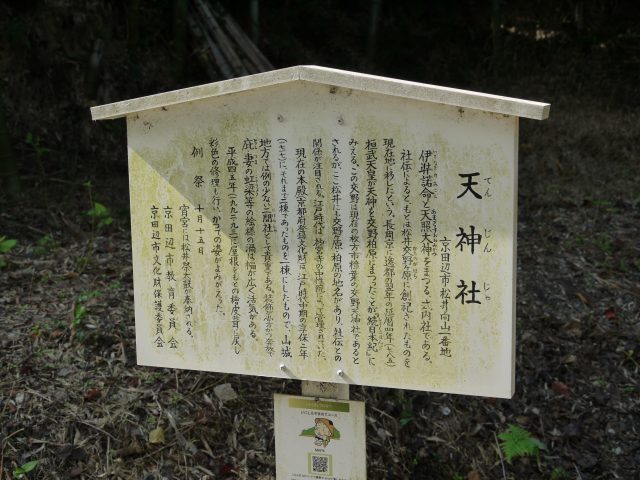 天神社
てんじんじゃ
京田辺市松井向山一番地
伊弉諾命と天照大神をまつる式内社である。
社伝によるともとは松井交野ヶ原に創祀されたものを
現在地に移したという。長岡京に遷都の翌年の延暦四年(七八五)
桓武天皇が天神を交野柏原にまつったことが「続日本紀」に
みえる。この交野は現在の枚方市樟葉の交野天神社であると
されるが、ここ松井にも交野ヶ原・柏原の地名があり、社伝との
関係が注目される。江戸時代は
現在の本殿(京都府登録文化財)は、江戸時代中期の享保二年
(一七一七)に、それまで二棟であったものを一棟にしたもので、山城
地方では例の少ない二間社として貴重である。装飾
庇・妻の虹梁等の絵様の渦は幅が広く活気がある。
平成四・五年(一九九二・九三)に屋根をもとの檜皮葺に戻し
彩色の修理も行い、かつての姿がよみがえった。
例祭 十月十五日
宵宮には松井祭太鼓が奉納される。
京田辺市教育委員会
京田辺市文化財保護委員会